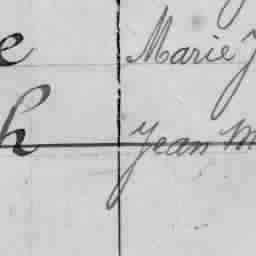 e Marie J
h Jean M